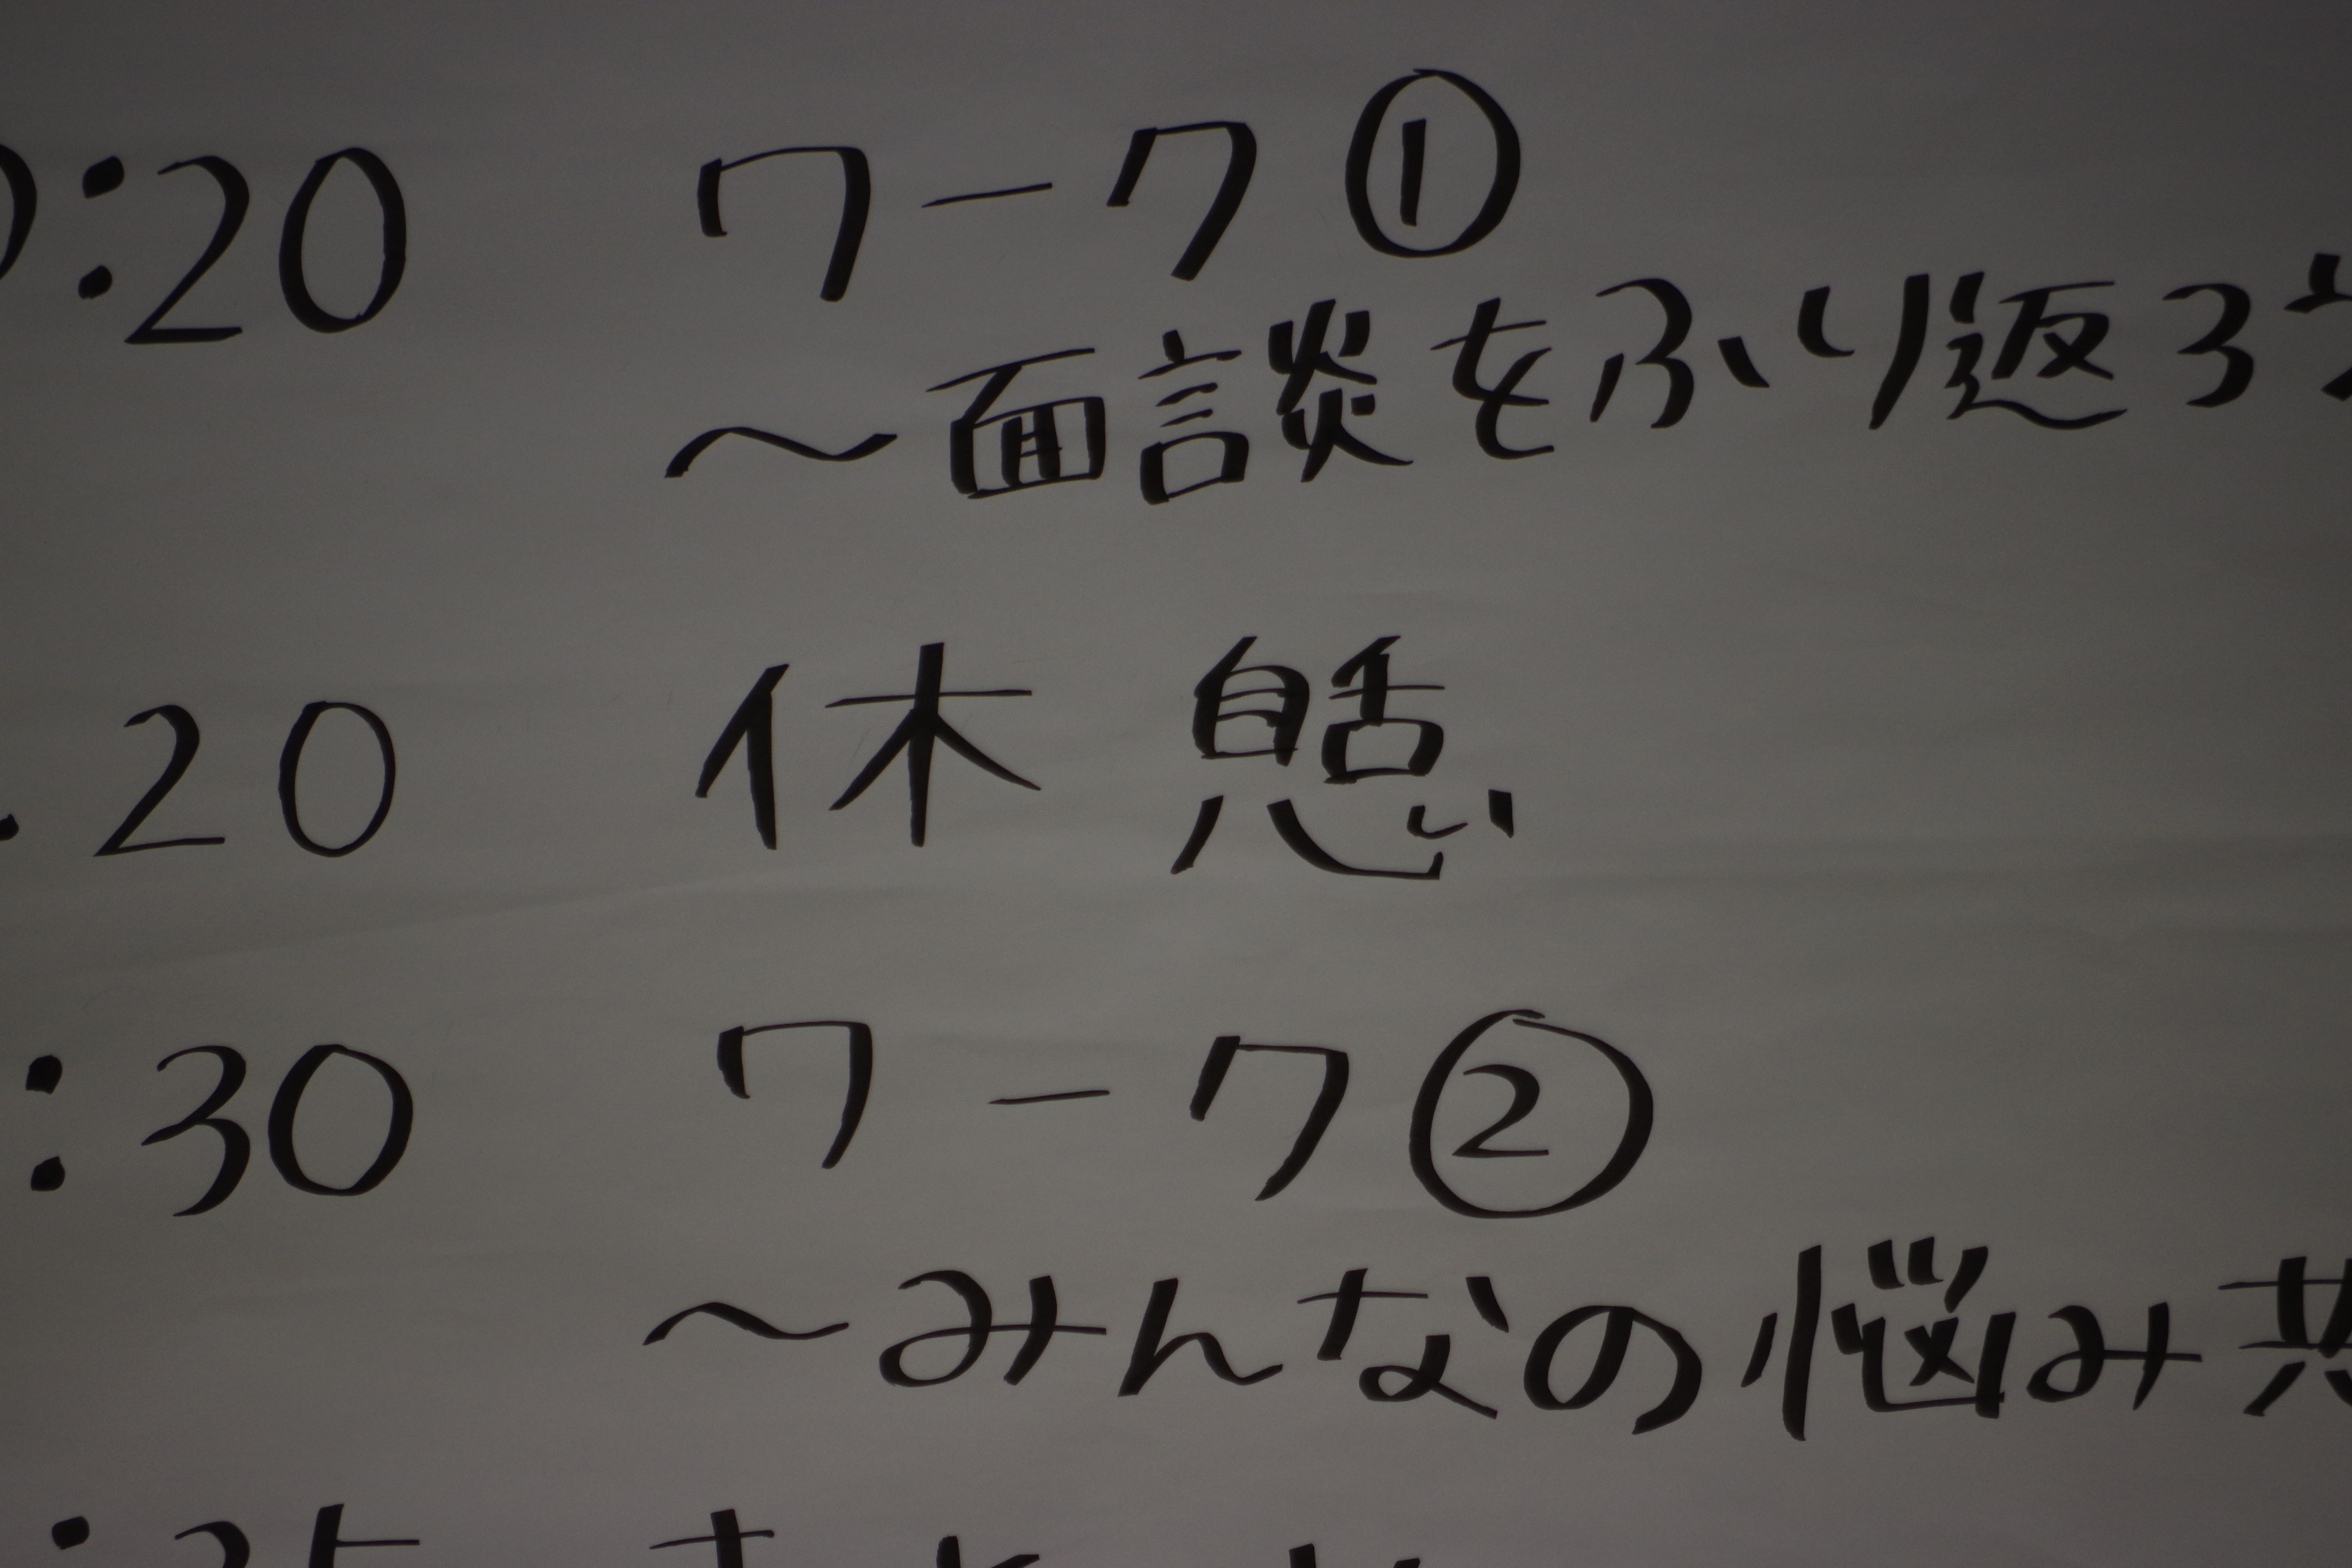 :20 ワーク①
～面談をふり返ろう
:20 休憩
:30 ワーク②
～みんなの悩み共